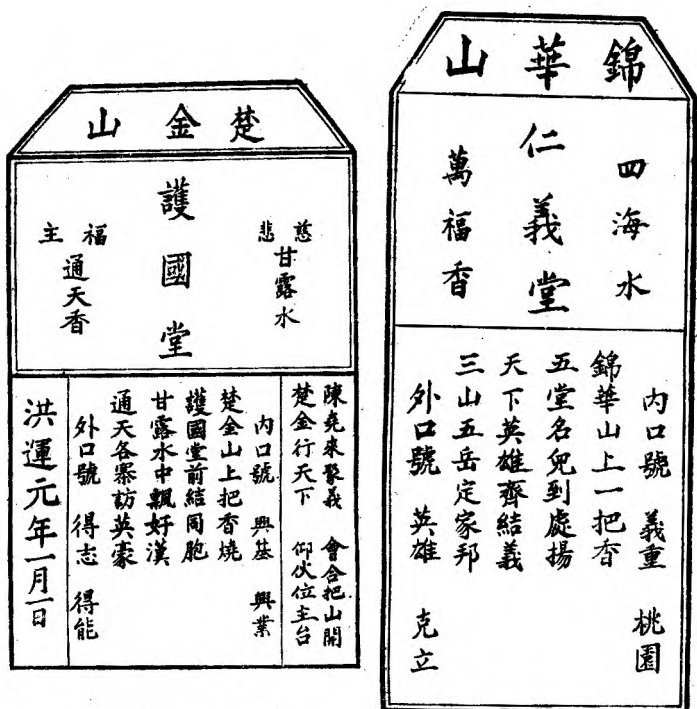 錦華山
四海水
仁義堂
萬福香
內口號 義重 桃園
錦華山上一把香
五堂名兒到處揚
天下英雄齊結義
三山五岳定家邦
外口號 英雄 克立
楚金山
慈悲
甘露水
護國堂
福主
通天香
陳堯來聚義 會合把山開
楚金行天下 仰伙位主台
內口號 興基 興業
楚金山上把香燒
護國堂前結同胞
甘露水中飄好漢
通天各寨訪英豪
外口號 得志 得能
洪運元年一月一日